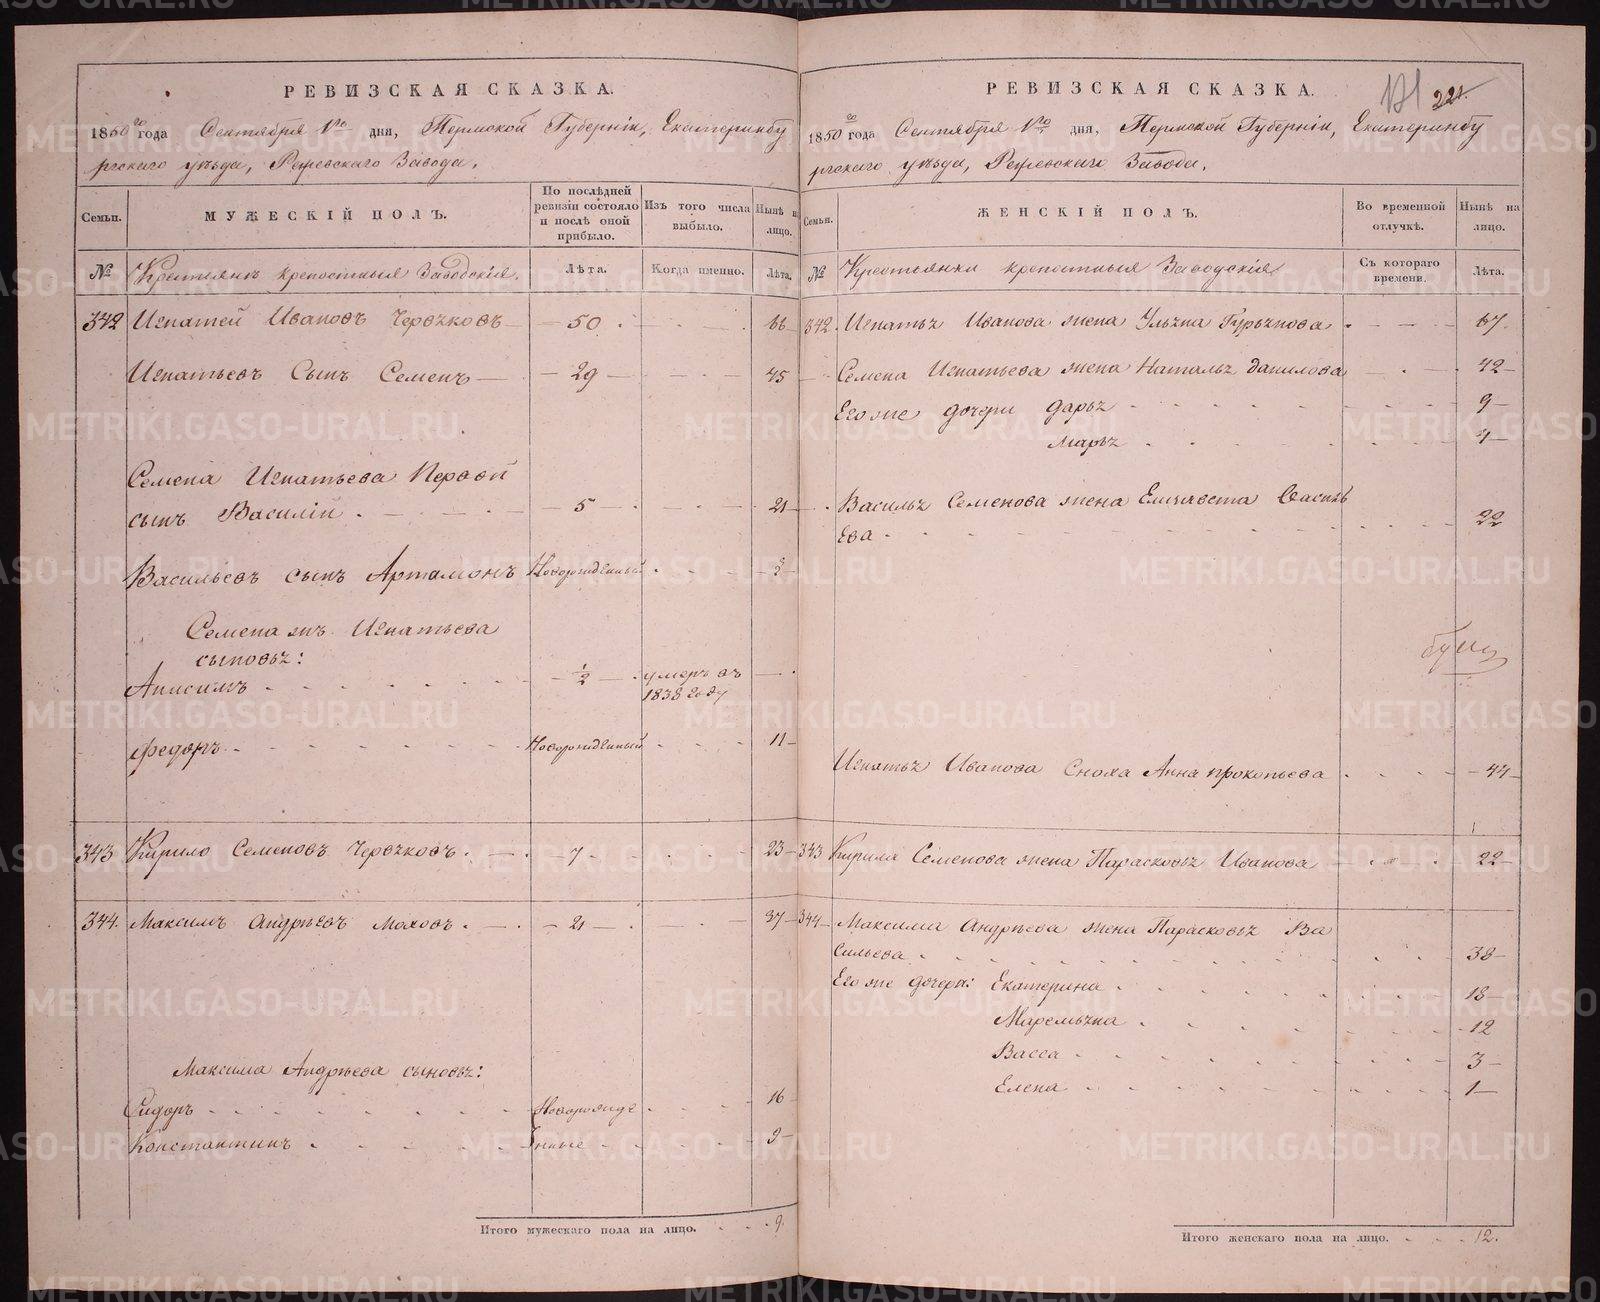 РЕВИЗСКАЯ СКАЗКА.
1850го года Сентября 1го дня, Пермской Губерніи, Екатеринбу
ргскаго уѣзда, Режевскаго Завода.
Семьи.
МУЖЕСКІЙ ПОЛЪ.
По послѣдней ревизіи состояло и послѣ оной прибыло.
Изъ того числа выбыло.
Нынѣ на лицо.
№
Крестьянъ крепостныя Заводскія.
Лѣта.
Когда именно.
Лѣта.
342 Игнатей Ивановъ Червяковъ 50 66
Игнатьевъ Сынъ Семенъ 29 45
Семена Игнатьева Первой
сынъ Василій 5 21
Васильевъ сынъ Артамонъ Новорожденный
Семена жъ Игнатьева
сыновья:
Анисимъ 1/2 умеръ въ
1838 году
Федоръ Новорожденный 11
343 Кирило Семеновъ Червяковъ 7 23
344. Максимъ Андрѣевъ Моховъ 21 37
Максима Андрѣева сыновья:
Сидоръ Новорожде 16
Константинъ нные 9
Итого мужескаго пола на лицо. 9.
РЕВИЗСКАЯ СКАЗКА.
221.
1850го года Сентября 1го дня, Пермской Губерніи, Екатеринбу
ргскаго уѣзда, Режевскаго Завода.
Семьи.
ЖЕНСКІЙ ПОЛЪ.
Во временной отлучкѣ.
Нынѣ на лицо.
№
Крестьянки крепостныя Заводскія
Съ котораго времени.
Лѣта.
342. Игнатья Иванова жена Ульяна Гурьянова 67
Семена Игнатьева жена Наталья Данилова 42
Его же дочери Дарья 9
Марья 4
Василья Семенова жена Елизавета Василь
ева 22
Игнатья Иванова Сноха Анна Прокопьева 44
343 Кирила Семенова жена Парасковья Иванова 22
344 Максима Андрѣева жена Парасковья Ва
сильева 38
Его же дочери: Екатерина 18
Маремьяна 12
Васса 3
Елена 1
Итого женскаго пола на лицо. 12.
METRIKI.GASO-URAL.RU